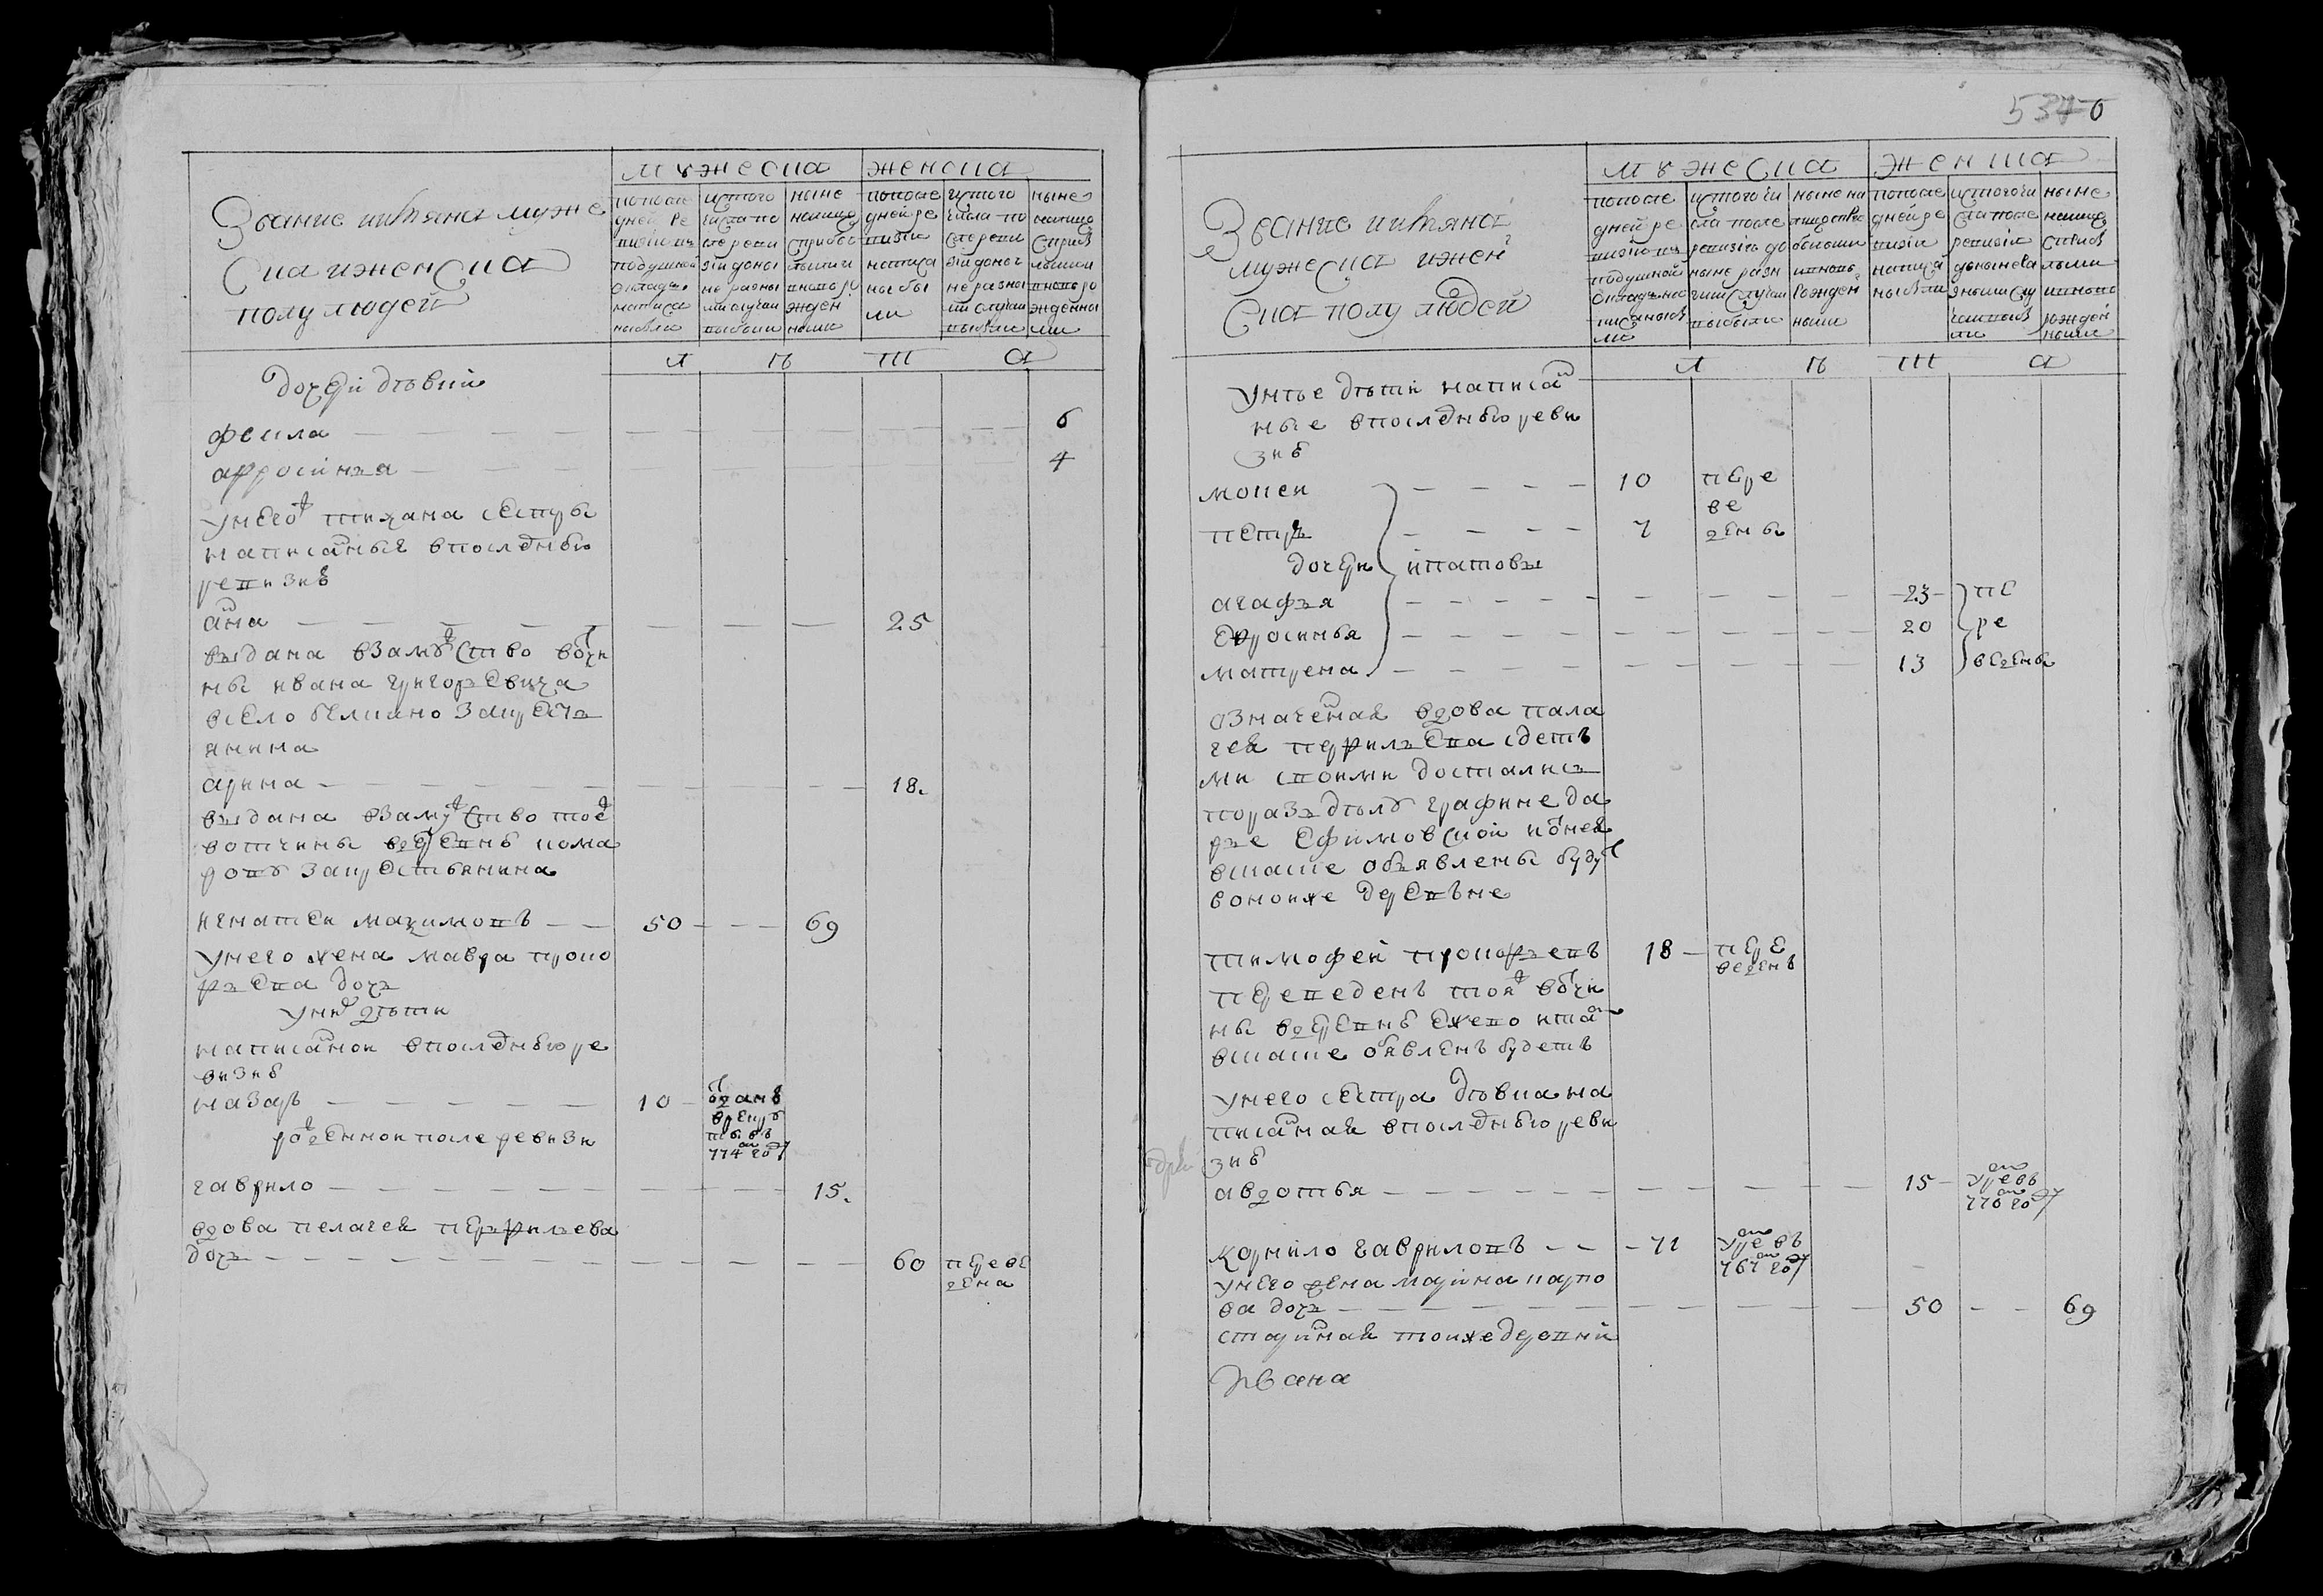 Звание крестьянъ муже
ска и женска
полу людей
мужеска
женска
по после
дней ре
визіи въ
подушной
окладъ
написа
ны были
ис того
числа по
сле реви
зіи до ны
не разны
ми случаи
выбыли
ныне
на лицо
с прибы
лыми и
вновь ро
жден
ными
по после
дней ре
визіи
написа
ны бы
ли
ис того
числа по
сле реви
зіи до ны
не разны
ми случаи
выбыли
ныне
на лицо
с прибы
лыми
и вновь ро
жденны
ми
л ѣ т а
дочери девки
фекла 6
афросинья 4
у него ж тихана сестры
написаныя в последнюю
ревизию
анна 25
выдана взамужство вотчи
ны ивана григорьевича
в село за крестья
янина
арина 18.
выдана взамужство тое ж
вотчины в деревню кома
рову за крестьянина
игнатей максимовъ 50 69
у него жена мавра проко
фьева дочь
у них дети
написанной в последнюю ре
визию
назаръ 10 отданъ
в рекру
ты въ
774м году
рожденной после ревизи
гаврило 15.
вдова пелагея перфильева
дочь 60 переве
дена
5340
Звание крестьянъ
мужеска и жен
ска полу людей
мужеска
женска
по после
дней ре
визіи въ
подушной
окладъ на
писаны бы
ли
ис того чи
сла после
ревизіи до
ныне разн
ыми случаи
выбыли
ныне на
лицо с при
былыми
и вновь
рожден
ными
по после
дней ре
визіи
написа
ны были
ис того чи
сла после
ревизіи
до ныне ра
зными слу
чаи выбы
ли
ныне
на лицо
с прибы
лыми
и вновь
рожден
ными
л ѣ т а
у нее дети написан
ные в последнюю реви
зию
мокей 10 пере
ве
петръ 7 дены
дочери ипатовы
агафья 23 пе
ефросинья 20 ре
матрена 13 ведены
означенная вдова пала
гея перфильева з деть
ми своими достались
по разделу графине да
рье ефимовской и о ней
в скаске объявлены будут
в коной же деревьне
тимофей прокофьевъ 18 пере
веденъ
переведенъ тоя ж вотчи
ны в деревню ежево и та
в скаске объявленъ будетъ
у него сестра девка на
писаная в последнюю реви
зию
авдотья 15 умре въ
776м году
корнило гавриловъ 71 умре въ
767м году
у него жена марина карпо
ва дочь 50 69
старинная той же деревни
Ивана